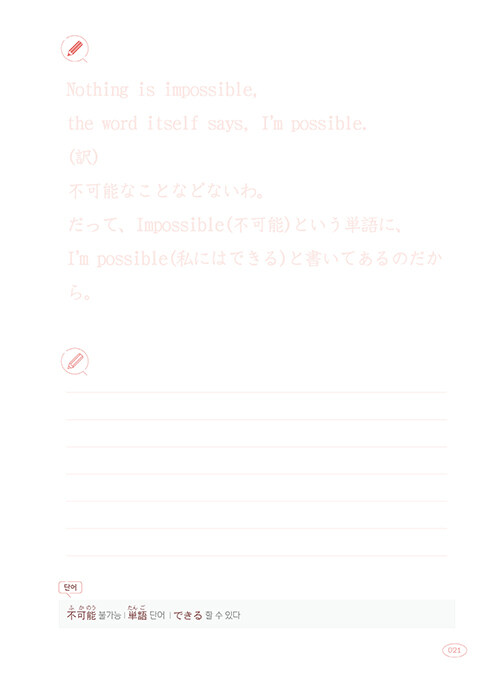 Nothing is impossible,
the word itself says, I'm possible.
(訳)
不可能なことなどないわ。
だって、Impossible(不可能)という単語に、
I'm possible(私にはできる)と書いてあるのだか
ら。
단어
ふ か のう たん ご
不可能 불가능 | 単語 단어 | できる 할 수 있다
021